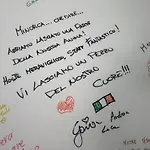 MINORCA... CHE DIRE...
ABBIAMO LASCIATO UNA PARTE
DELLA NOSTRA ANIMA!
HOTEL MERAVIGLIOSO, STAFF FANTASTICO!
VI LASCIAMO UN PEZZO
DEL NOSTRO
CUORE!!!
Andrea
Luca